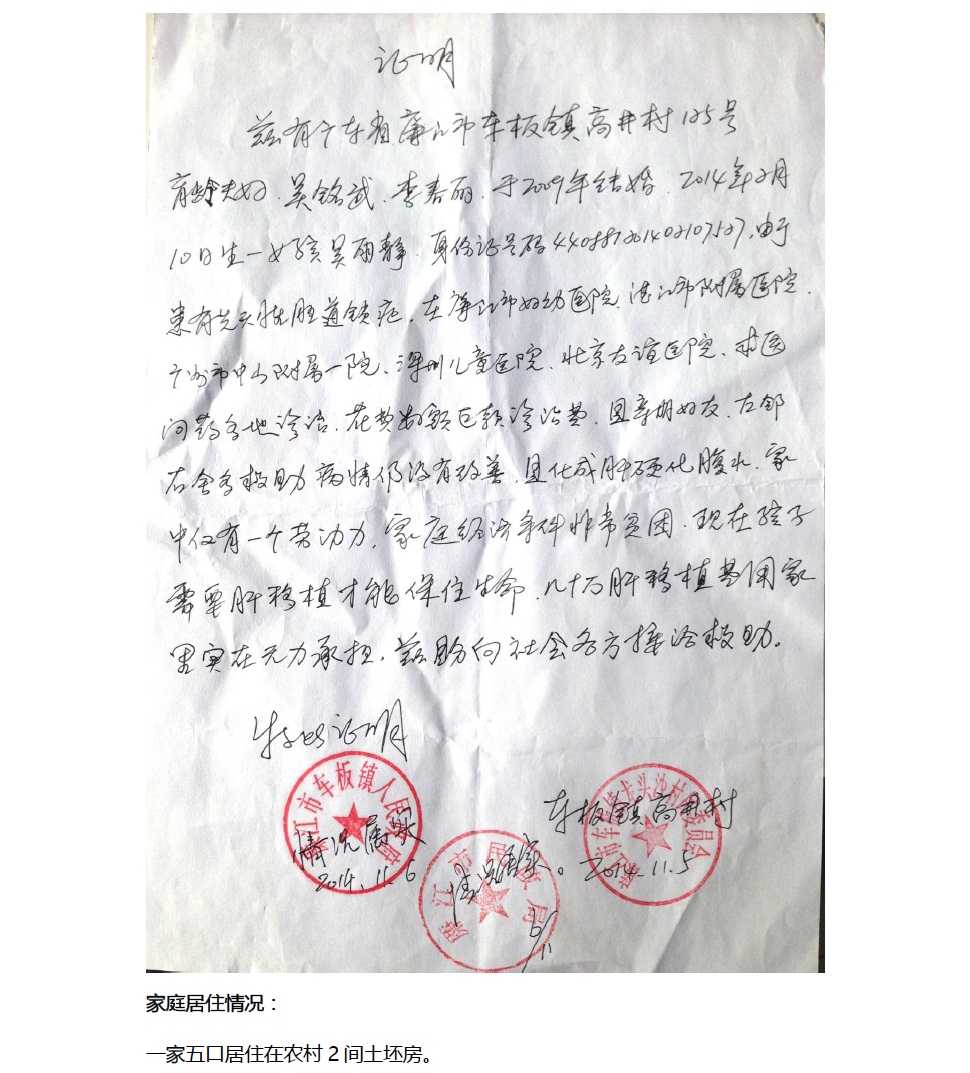 证明
兹有广东省廉江市车板镇高井村125号
育龄夫妇、吴铭武、李春丽、于2009年结婚、2014年2月
10日生一女孩吴雨静、身份证号码440881201402107527,由于
患有先天性胆道锁症、在廉江市妇幼医院、湛江市附属医院、
广州市中山附属一院、深圳儿童医院、北京友谊医院、求医
问药各地诊治、花费数额巨额诊治费、因亲朋好友、左邻
右舍多救助病情仍没有改善、且化成肝硬化腹水、家
中仅有一个劳动力,家庭经济条件非常贫困、现在孩子
需要肝移植才能保住生命、几十万肝移植费用家
里实在无力承担,兹盼向社会各方接洽救助。
特此证明
廉江市车板镇人民政府
情况属实
2014.11.6
廉江市民政局
情况属实。
6/11
车板镇龙头沙村委员会
车板镇高井村
2014.11.5
家庭居住情况:
一家五口居住在农村2间土坯房。